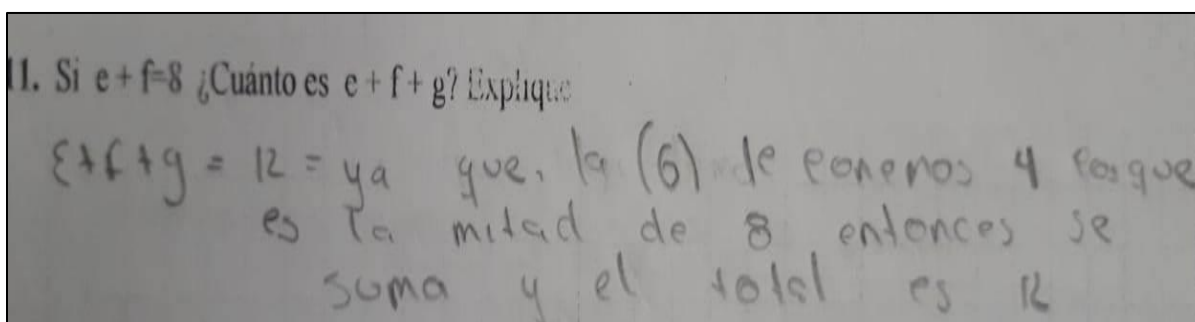 11. Si e + f=8 ¿Cuánto es e + f + g? Explique
E+f+g = 12 = ya que. la (G) le ponemos 4 porque
es la mitad de 8 entonces se
suma y el total es 12